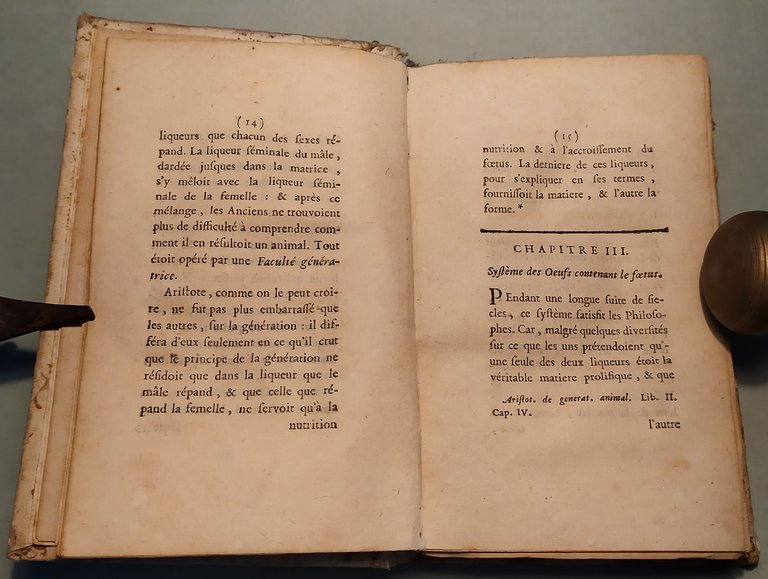 (14)
liqueurs que chacun des sexes ré-
pand. La liqueur séminale du mâle,
dardée jusques dans la matrice,
s'y mêloit avec la liqueur sémi-
nale de la femelle : & après ce
mélange, les Anciens ne trouvoient
plus de difficulté à comprendre com-
ment il en résultoit un animal. Tout
étoit opéré par une Faculté généra-
trice.
Aristote, comme on le peut croi-
re, ne fut pas plus embarrassé que
les autres, sur la génération : il dif-
féra d'eux seulement en ce qu'il crut
que le principe de la génération ne
résidoit que dans la liqueur que le
mâle répand, & que celle que ré-
pand la femelle, ne servoit qu'à la
nutrition
(15)
nutrition & à l'accroissement du
fœtus. La derniere de ces liqueurs,
pour s'expliquer en ses termes,
fournissoit la matiere, & l'autre la
forme.*
CHAPITRE III.
Système des Oeufs contenant le fœtus.
PEndant une longue suite de sie-
cles, ce système satisfit les Philoso-
phes. Car, malgré quelques diversités
sur ce que les uns prétendoient qu'-
une seule des deux liqueurs étoit la
véritable matiere prolifique, & que
Aristot. de generat. animal. Lib. II.
Cap. IV.
l'autre